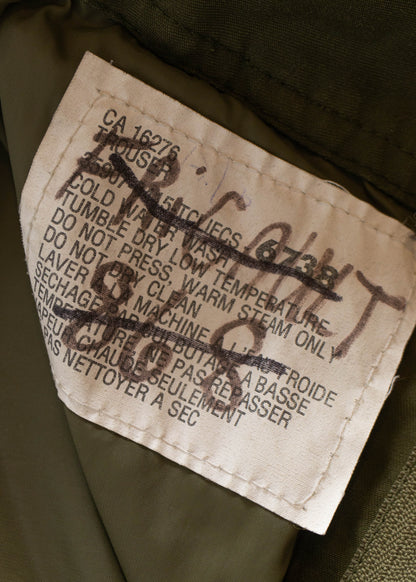 CA 16276
TROUSER
6738
COLD WATER WASH
TUMBLE DRY, LOW TEMPERATURE
DO NOT PRESS, WARM STEAM ONLY
DO NOT DRY CLEAN
LAVER A LA MACHINE, L'EAU FROIDE
SECHAGE PAR CULBUTAGE A BASSE
TEMPERATURE, NE PAS REPASSER
VAPEUR CHAUDE SEULEMENT
PAS NETTOYER A SEC
808